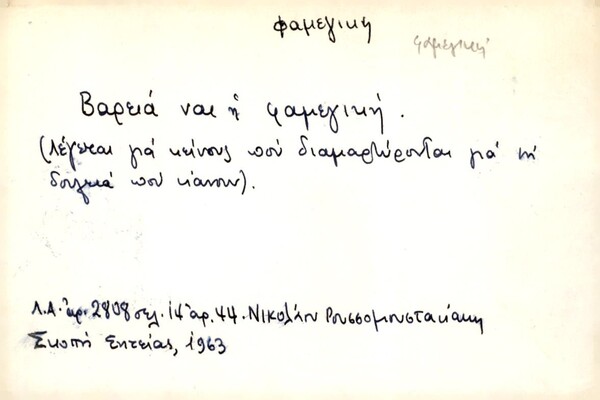 φαμεγική
φαμεγική
Βαρειά ναι ἡ φαμεγική.
(λέγεται γιά κείνους πού διαμαρτύρονται γιά τή
δουλειά πού κάνουν).
Λ.Α. ἀρ. 2808 σελ. 14 ἀρ. 44. Νικολάου Ρουσσομουστακάκη
Σκοπή Σητείας, 1963